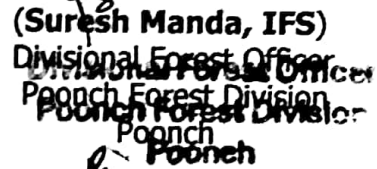 (Suresh Manda, IFS)
Divisional Forest Officer
Divisional Forest Officer
Poonch Forest Division
Poonch Forest Division
Poonch
Poonch